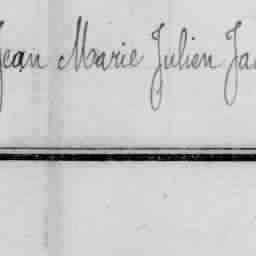 Jean Marie Julien